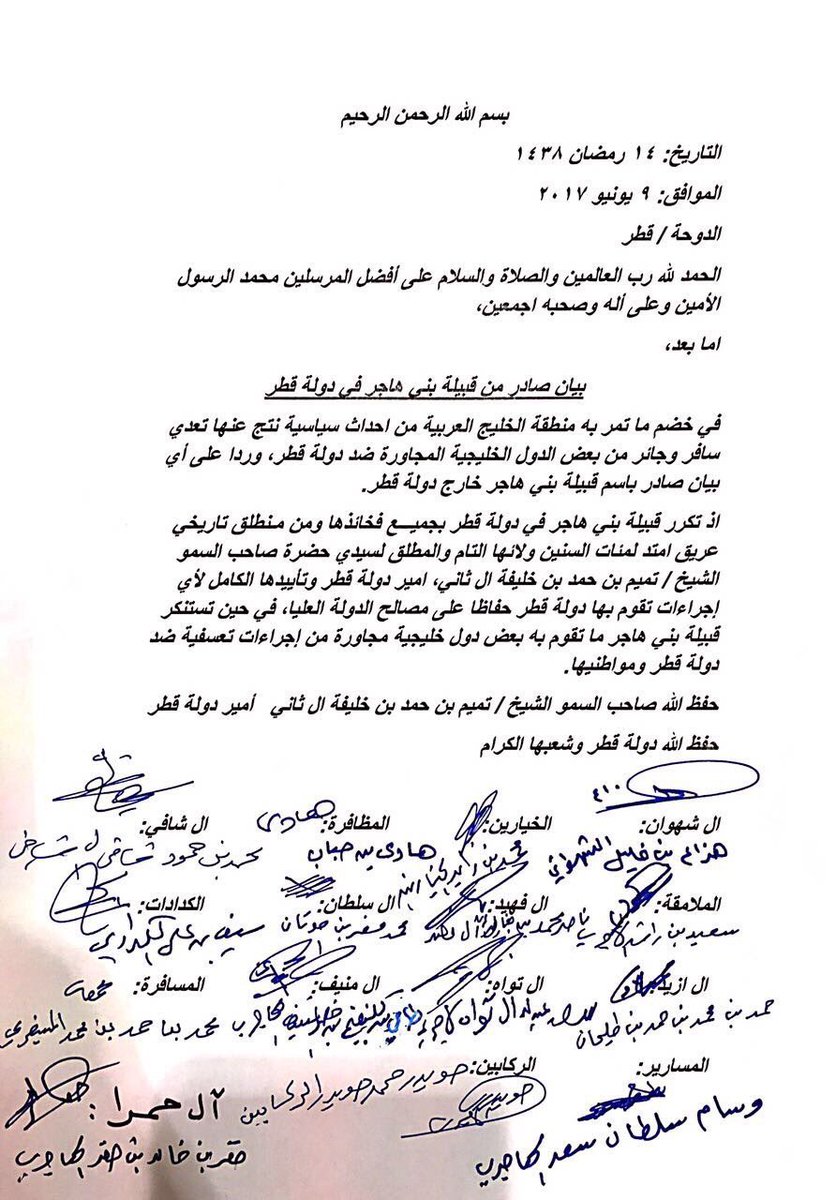 بسم الله الرحمن الرحيم
التاريخ: ١٤ رمضان ١٤٣٨
الموافق: ٩ يونيو ٢٠١٧
الدوحة / قطر
الحمد لله رب العالمين والصلاة والسلام على أفضل المرسلين محمد الرسول
الأمين وعلى أله وصحبه اجمعين،
اما بعد،
بيان صادر من قبيلة بني هاجر في دولة قطر
في خضم ما تمر به منطقة الخليج العربية من احداث سياسية نتج عنها تعدي
سافر وجائر من بعض الدول الخليجية المجاورة ضد دولة قطر، وردا على أي
بيان صادر باسم قبيلة بني هاجر خارج دولة قطر.
اذ تكرر قبيلة بني هاجر في دولة قطر بجميـــع فخائذها ومن منطلق تاريخي
عريق امتد لمئات السنين ولائها التام والمطلق لسيدي حضرة صاحب السمو
الشيخ / تميم بن حمد بن خليفة ال ثاني، امير دولة قطر وتأييدها الكامل لأي
إجراءات تقوم بها دولة قطر حفاظا على مصالح الدولة العليا، في حين تستنكر
قبيلة بني هاجر ما تقوم به بعض دول خليجية مجاورة من إجراءات تعسفية ضد
دولة قطر ومواطنيها.
حفظ الله صاحب السمو الشيخ / تميم بن حمد بن خليفة ال ثاني أمير دولة قطر
حفظ الله دولة قطر وشعبها الكرام
ال شهوان: الخيارين: المظافرة: هادي ال شافي:
هزاع بن خليل الشهواني هادي بن صباب محمد بن حمود شافي ال شافي
الملامقة: ال فهيد: ال سلطان: الكدادات:
سعيد بن راشد محمد سيف بن علي الكدادي
ال ازيد: ال تواه: ال منيف: المسافرة:
حمد بن محمد بن حمد بن طيحان عبدالله ال تواه محمد بن حمد بن محمد المسيفري
المسارير: الركابين: صويدر حمد صويدر الركابين
آل حمرا:
وسام سلطان سعد الهاجري
صقر بن خالد بن صقر الهاجري